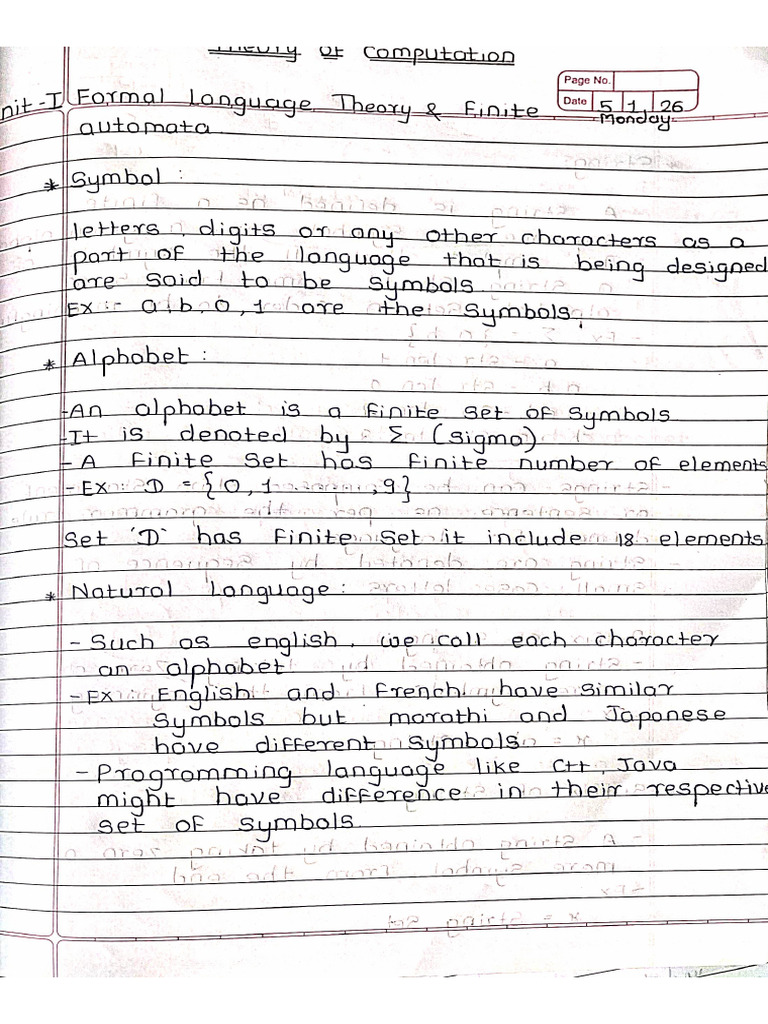 Theory of Computation
Page No.
Date 5 1 26
Monday
nit-I Formal Language Theory & Finite
automata
* Symbol :
letters, digits or any other characters as a
part of the language that is being designed
are said to be symbols.
Ex :- a, b, 0, 1 are the symbols.
* Alphabet :
-An alphabet is a finite set of symbols
-It is denoted by Σ (sigma)
- A finite set has finite number of elements
-Ex :- D = {0, 1 ......, 9}
Set 'D' has finite set it include 18 elements.
* Natural Language :
- Such as english, we call each character
an alphabet
- Ex :- English and French have similar
symbols but marathi and Japanese
have different symbols
- Programming language like C++, Java
might have difference in their respective
set of symbols.